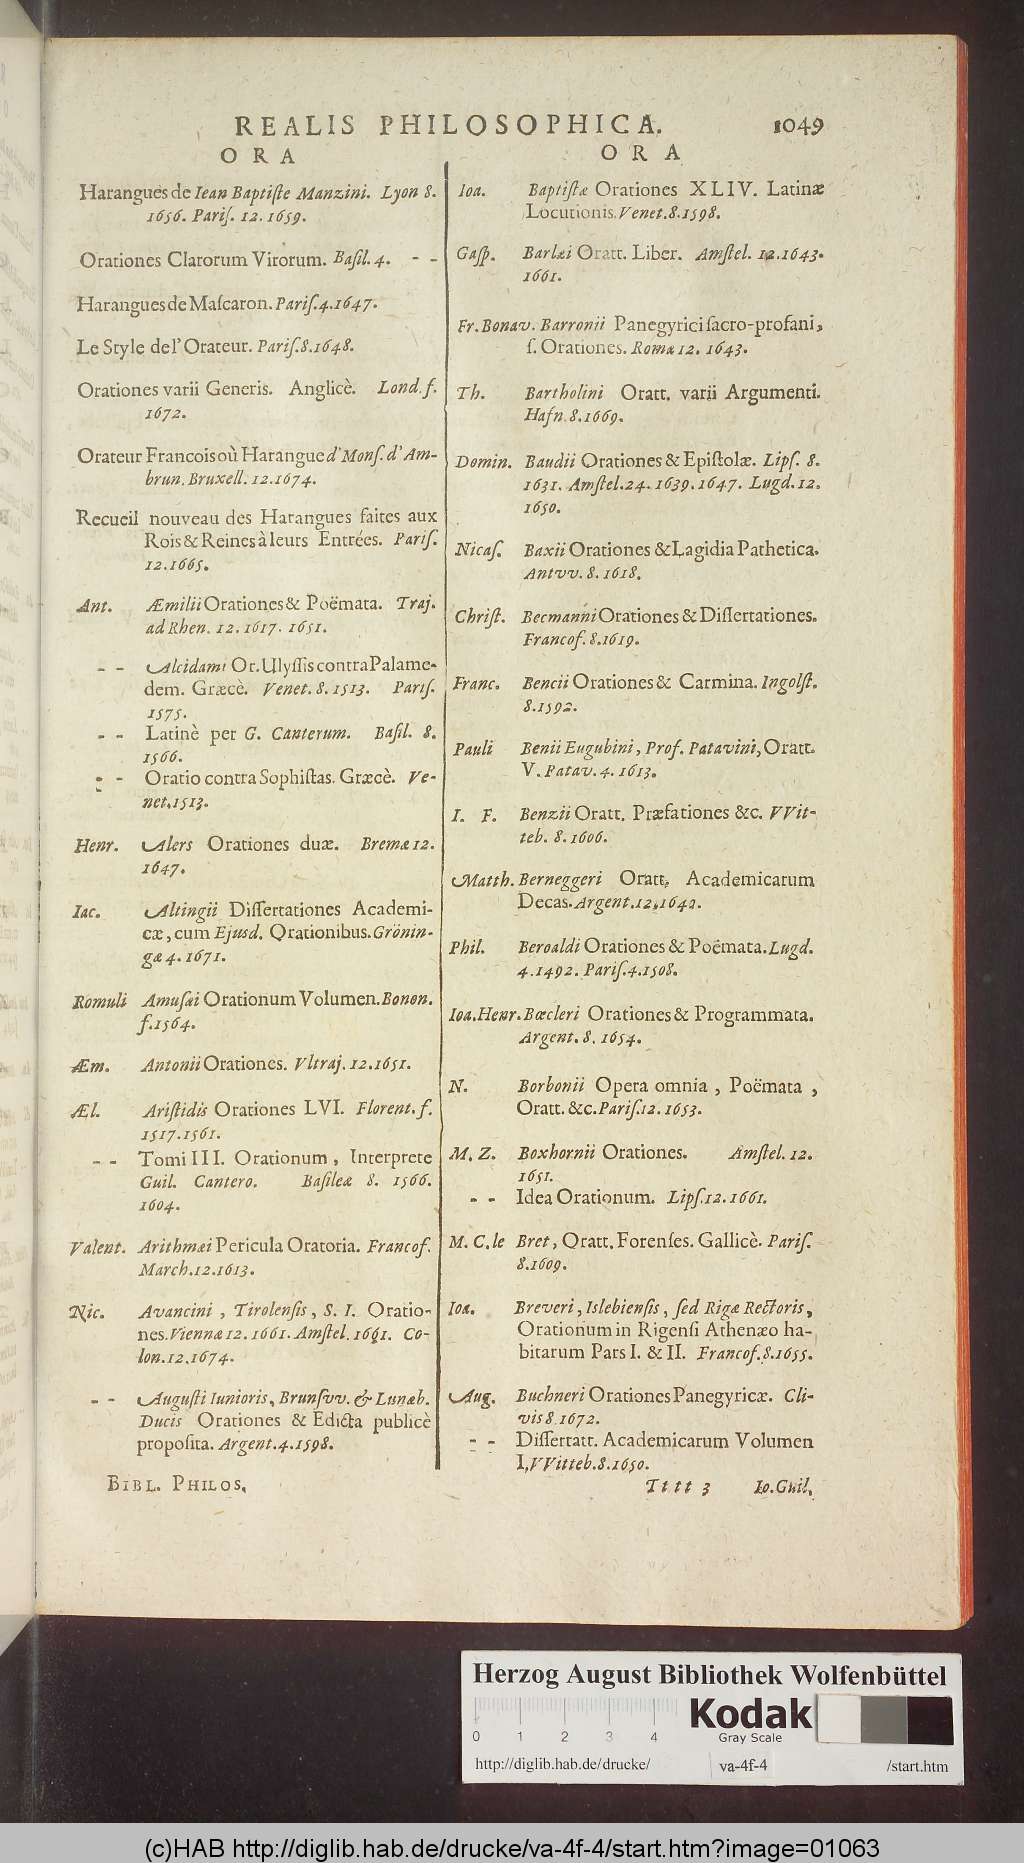 REALIS PHILOSOPHICA. 1049
ORA
Harangues de Iean Baptiſte Manzini. Lyon 8.
1656. Pariſ. 12. 1659.
Orationes Clarorum Virorum. Baſil. 4. - -
Harangues de Maſcaron. Pariſ. 4. 1647.
Le Style de l'Orateur. Pariſ. 8. 1648.
Orationes varii Generis. Anglicè. Lond. f.
1672.
Orateur Francois où Harangue d'Monſ. d'Am-
brun. Bruxell. 12. 1674.
Recueil nouveau des Harangues faites aux
Rois & Reines à leurs Entrées. Pariſ.
12. 1665.
Ant. Æmilii Orationes & Poëmata. Traj.
ad Rhen. 12. 1617. 1651.
- - Alcidami Or. Ulyſſis contra Palame-
dem. Græcè. Venet. 8. 1513. Pariſ.
1575.
- - Latinè per G. Canterum. Baſil. 8.
1566.
- - Oratio contra Sophiſtas. Græcè. Ve-
net. 1513.
Henr. Alers Orationes duæ. Bremæ 12.
1647.
Iac. Altingii Diſſertationes Academi-
cæ, cum Ejusd. Orationibus. Grönin-
gæ 4. 1671.
Romuli Amuſæi Orationum Volumen. Bonon.
f. 1564.
Æm. Antonii Orationes. Vltraj. 12. 1651.
Æl. Ariſtidis Orationes LVI. Florent. f.
1517. 1561.
- - Tomi III. Orationum, Interprete
Guil. Cantero. Baſileæ 8. 1566.
1604.
Valent. Arithmæi Pericula Oratoria. Francof.
March. 12. 1613.
Nic. Avancini, Tirolenſis, S. I. Oratio-
nes. Viennæ 12. 1661. Amſtel. 1661. Co-
lon. 12. 1674.
- - Auguſti Iunioris, Brunſvv. & Lunæb.
Ducis Orationes & Edicta publicè
propoſita. Argent. 4. 1598.
BIBL. PHILOS.
ORA
Ioa. Baptiſtæ Orationes XLIV. Latinæ
Locutionis. Venet. 8. 1598.
Gaſp. Barlæi Oratt. Liber. Amſtel. 12. 1643.
1661.
Fr. Bonav. Barronii Panegyrici ſacro-profani,
ſ. Orationes. Romæ 12. 1643.
Th. Bartholini Oratt. varii Argumenti.
Hafn. 8. 1669.
Domin. Baudii Orationes & Epiſtolæ. Lipſ. 8.
1631. Amſtel. 24. 1639. 1647. Lugd. 12.
1650.
Nicaſ. Baxii Orationes & Lagidia Pathetica.
Antvv. 8. 1618.
Chriſt. Becmanni Orationes & Diſſertationes.
Francof. 8. 1619.
Franc. Bencii Orationes & Carmina. Ingolſt.
8. 1592.
Pauli Benii Eugubini, Prof. Patavini, Oratt.
V. Patav. 4. 1613.
I. F. Benzii Oratt. Præfationes &c. VVit-
teb. 8. 1606.
Matth. Berneggeri Oratt. Academicarum
Decas. Argent. 12. 1640.
Phil. Beroaldi Orationes & Poëmata. Lugd.
4. 1492. Pariſ. 4. 1508.
Ioa. Henr. Bœcleri Orationes & Programmata.
Argent. 8. 1654.
N. Borbonii Opera omnia, Poëmata,
Oratt. &c. Pariſ. 12. 1653.
M. Z. Boxhornii Orationes. Amſtel. 12.
1651.
- - Idea Orationum. Lipſ. 12. 1661.
M. C. le Bret, Oratt. Forenſes. Gallicè. Pariſ.
8. 1609.
Ioa. Breveri, Islebienſis, ſed Rigæ Rectoris,
Orationum in Rigenſi Athenæo ha-
bitarum Pars I. & II. Francof. 8. 1655.
Aug. Buchneri Orationes Panegyricæ. Cli-
vis 8. 1672.
- - Diſſertatt. Academicarum Volumen
I. VVitteb. 8. 1650.
Tttt 3 Io. Guil.
Herzog August Bibliothek Wolfenbüttel
Kodak
Gray Scale
0 1 2 3 4
http://diglib.hab.de/drucke/ va-4f-4 /start.htm
(c)HAB http://diglib.hab.de/drucke/va-4f-4/start.htm?image=01063